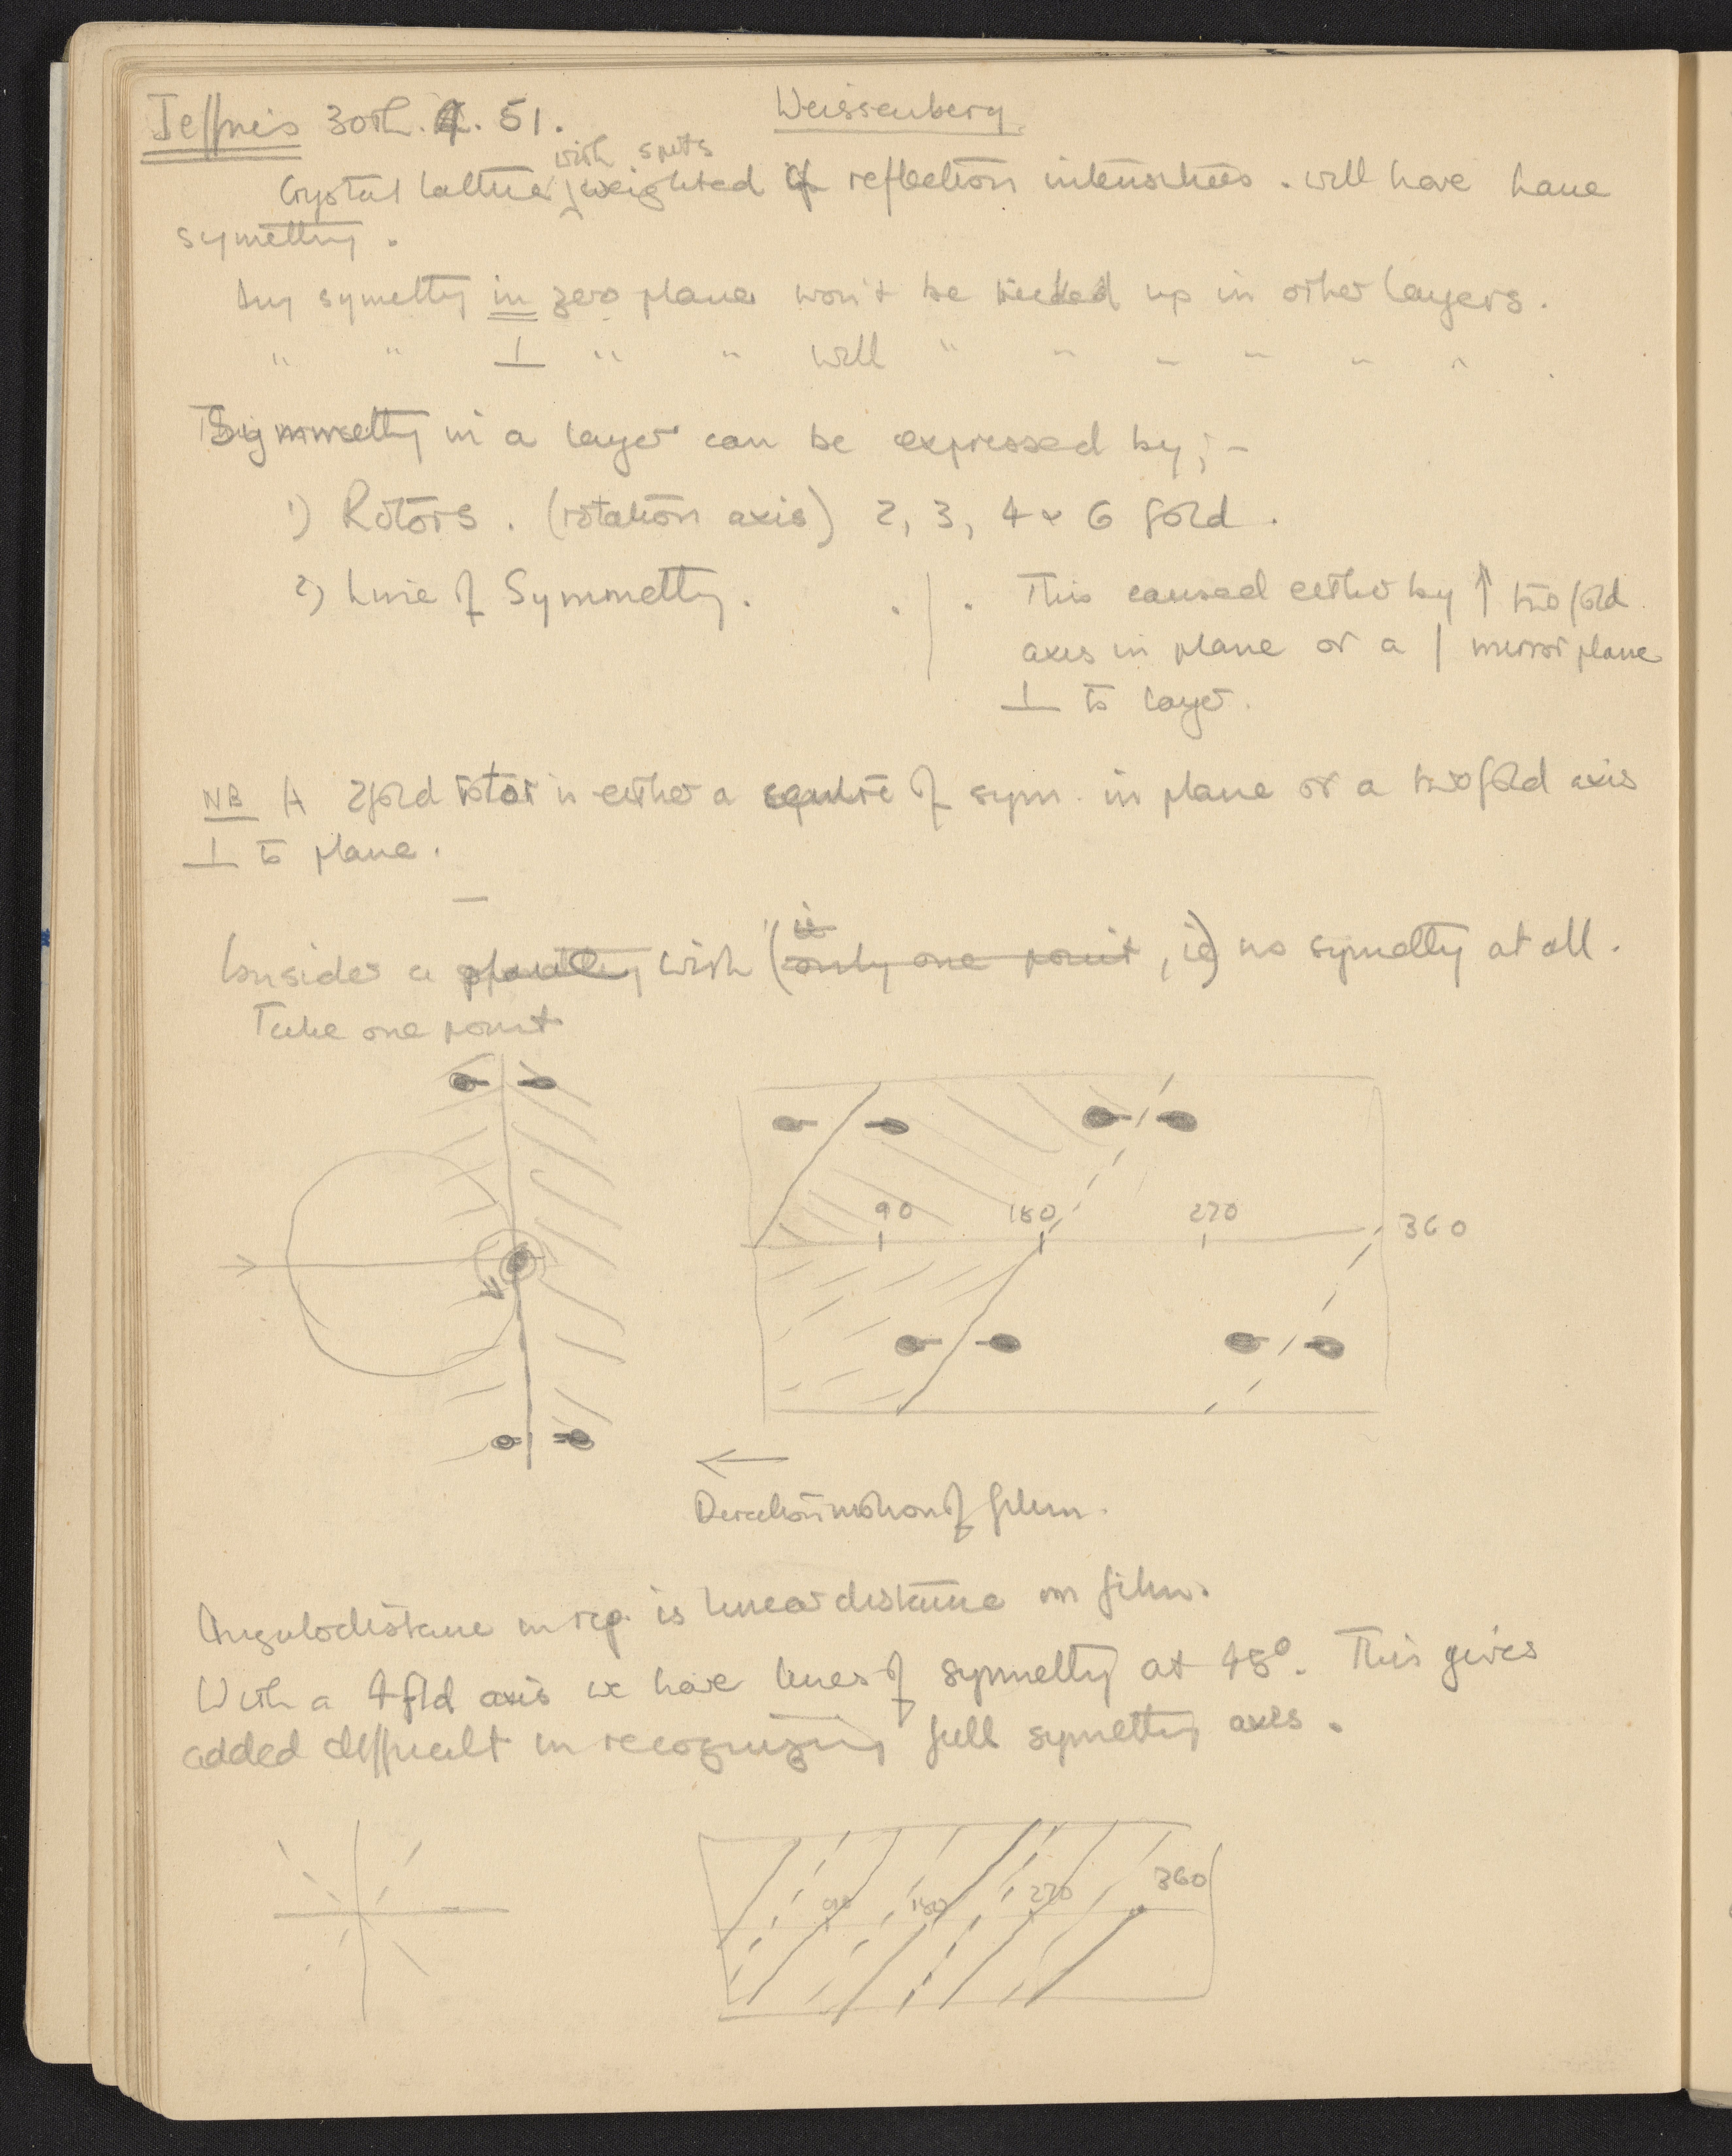 Jeffries 30th. 4. 51.
Weissenberg
with spots
Crystal lattice weighted of reflection intensities. will have have
symettry.
Any symettry in zero plane won't be picked up in other layers.
" " ⊥ " " will " " " " " "
Symmetry in a layer can be expressed by;-
1) Rotors. (rotation axis) 2, 3, 4 & 6 fold.
2) Line of Symmetry. . | . This caused either by ↑ two fold
axis in plane or a | mirror plane
⊥ to layer.
NB A 2fold rotor is either a centre of sym. in plane or a twofold axis
⊥ to plane.
Consider a with (only one point, ie) no symettry at all.
Take one point
90 180 270 360
←
Direction motion of film.
Angular distance in rep. is linear distance on film.
With a 4 fld axis we have lines of symmetry at 45°. This gives
added difficult in recognizing full symettry axes.
90 180 270 360